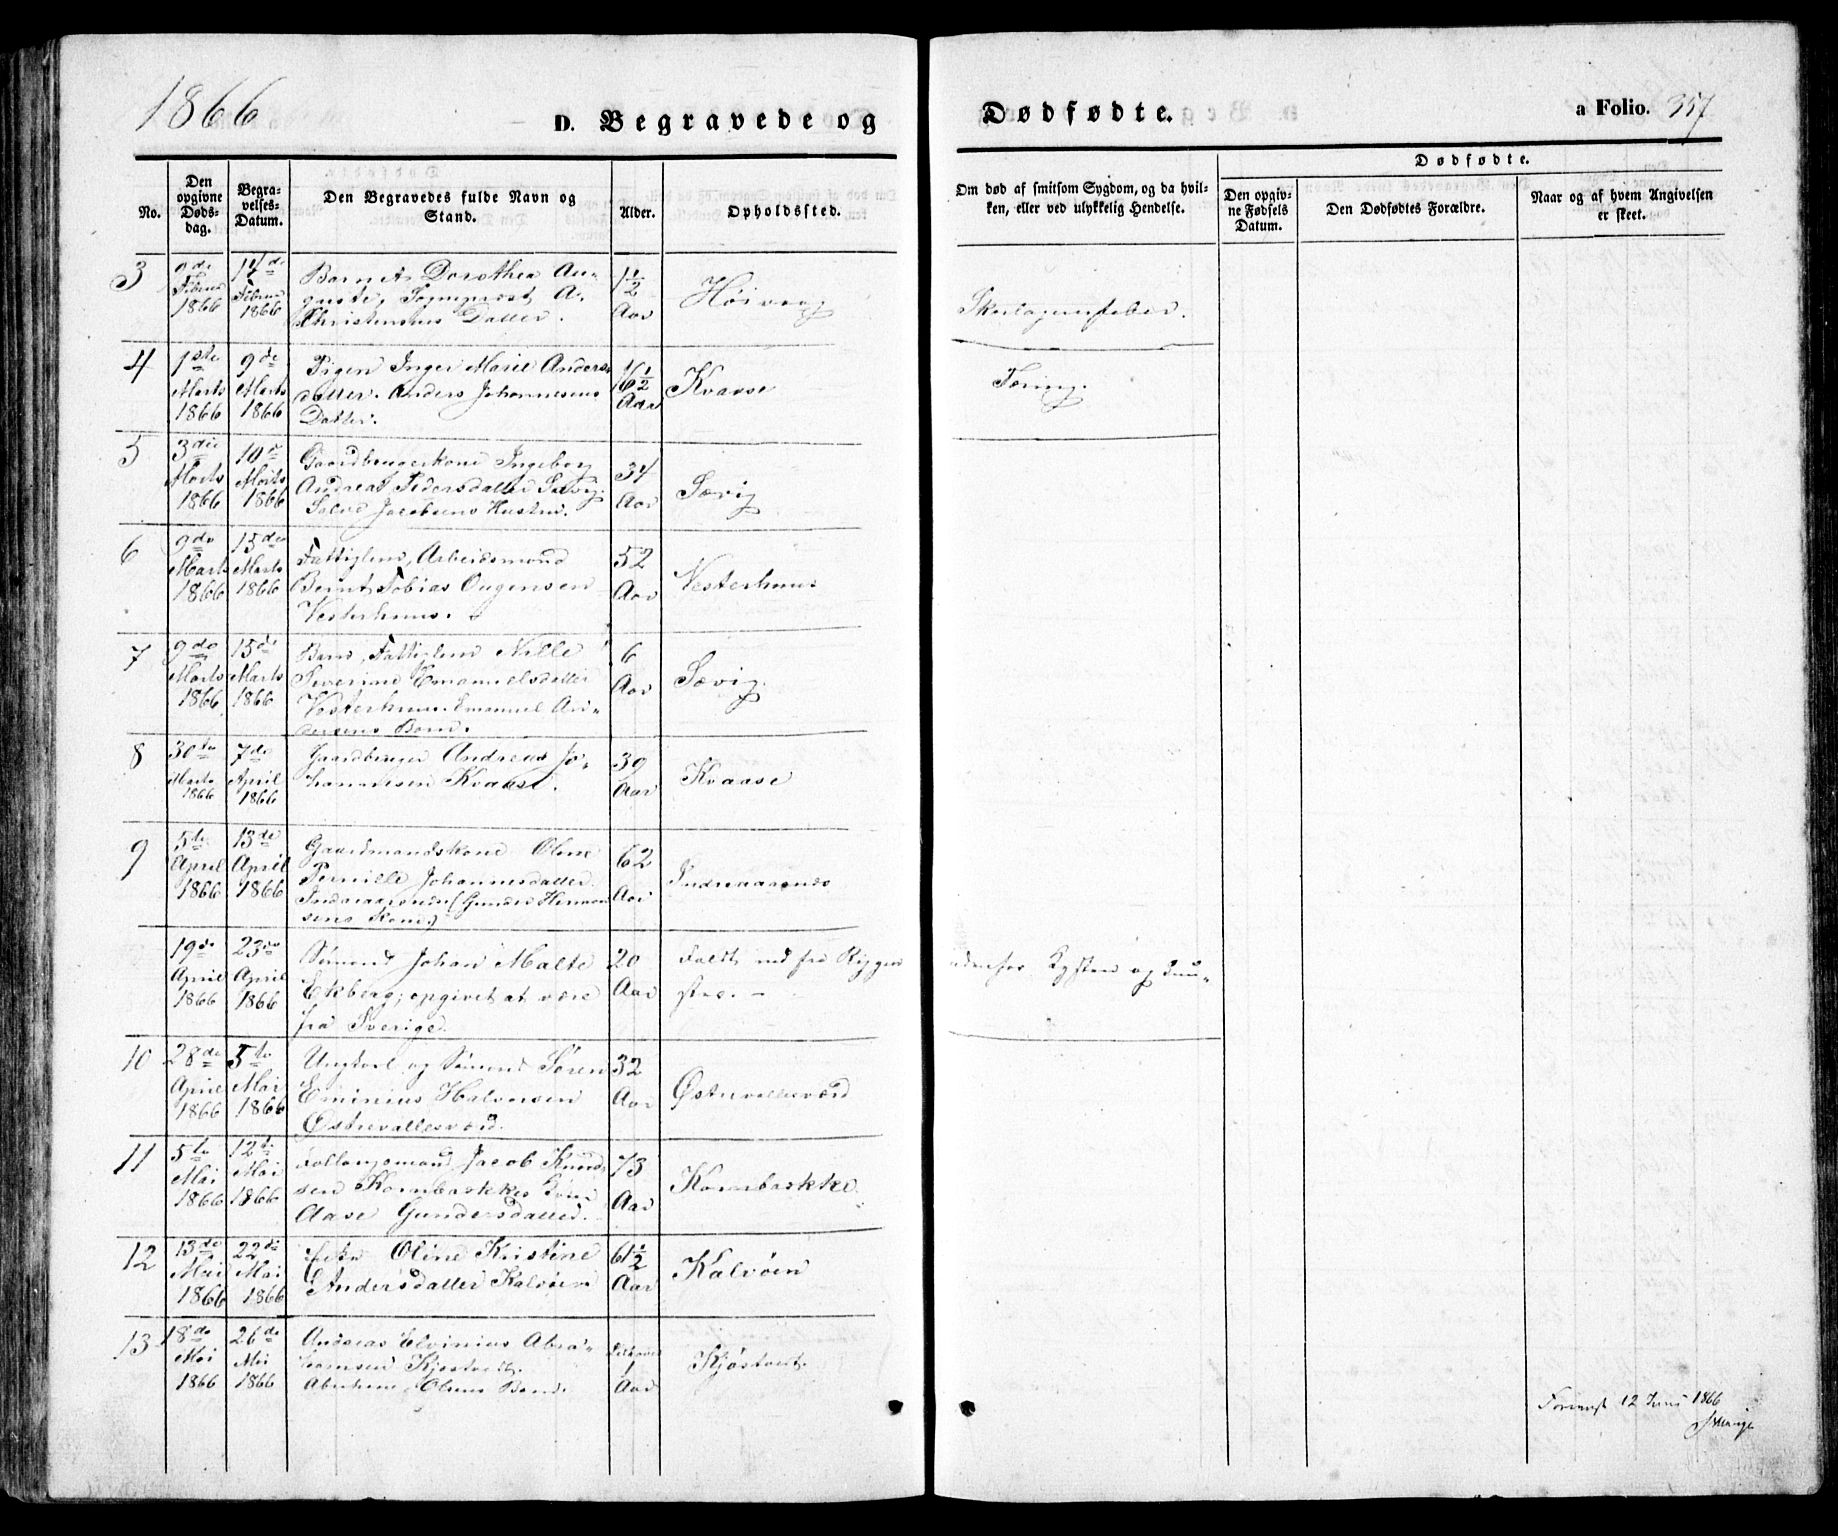 1866
D. Begravede og Dødfødte.
a Folio. 357
Dødfødte.
No.
Den opgivne Døds-dag.
Begra-velses-Datum.
Den Begravedes fulde Navn og Stand.
Alder.
Opholdssted.
Om død af smitsom Sygdom, og da hvil-
ken, eller ved ulykkelig Hendelse.
Den opgiv-
ne Fødsels
Datum.
Den Dødfødtes Forældre.
Naar og af hvem Angivelsen
er skeet.
3 9de Februar 1866 17de Februar 1866
Barnet Dorothea Au-
guste, Sogneprest A.
Christensens Datter.
1½ Aar
Høivaag
Skarlagensfeber.
4 1ste Marts 1866 9de Marts 1866
Pigen Inger Marie Anders
datter. Anders Johannesens
Datter.
16½ Aar
Kvaase
Tæring.
5 3die Marts 1866 10de Marts 1866
Gaardbrugerkone Ingeborg
Andrea Pedersdatter Sævig.
Salve Jacobsens Hustru.
34 Aar
Sævig
6 9de Marts 1866 15de Marts 1866
Fattiglem, Arbeidsmand
Bernt Tobias Ougensen
Vesterhuus.
52 Aar
Vesterhuus
7 9de Marts 1866 15de Marts 1866
Barn, Fattiglem Nille
Severine Emanuelsdatter
Vesterhuus. Emanuel An-
dersens Barn.
6 Aar
Sævig.
8 30te Marts 1866 7de April 1866
Gaardbruger Andreas Jo-
hannesen Kvaase.
39 Aar
Kvaase
9 5te April 1866 13de April 1866
Gaardmandskone Oline
Pernille Johannesdatter
(Gunder Herman
sens Kone)
62 Aar
19de April 1866 23de April 1866
Sømand Johan Malte
Ekberg; opgivet at være
fra Sverige.
20 Aar
Faldt ned fra Riggen udenfor Kysten og
10 28de April 1866 5te Mai 1866
Ungkarl og Sømand Søren
Eminius Halvorsen
Østrevallesværd.
32 Aar
Østrevallesværd
11 5te Mai 1866 12te Mai 1866
Jacob Knud
sen Kornbækkes Kone
Aase Gundersdatter.
73 Aar
Kornbække.
12 13de Mai 1866 22de Mai 1866
Enke Oline Kristine
Andersdatter Kalvøen
61½ Aar
Kalvøen
13 18de Mai 1866 26de Mai 1866
Andreas Elvinius Abra-
hamsen Kjøstvedt.
Abraham Olsens Barn.
1 Aar
Kjøstvedt.
12 Juni 1866